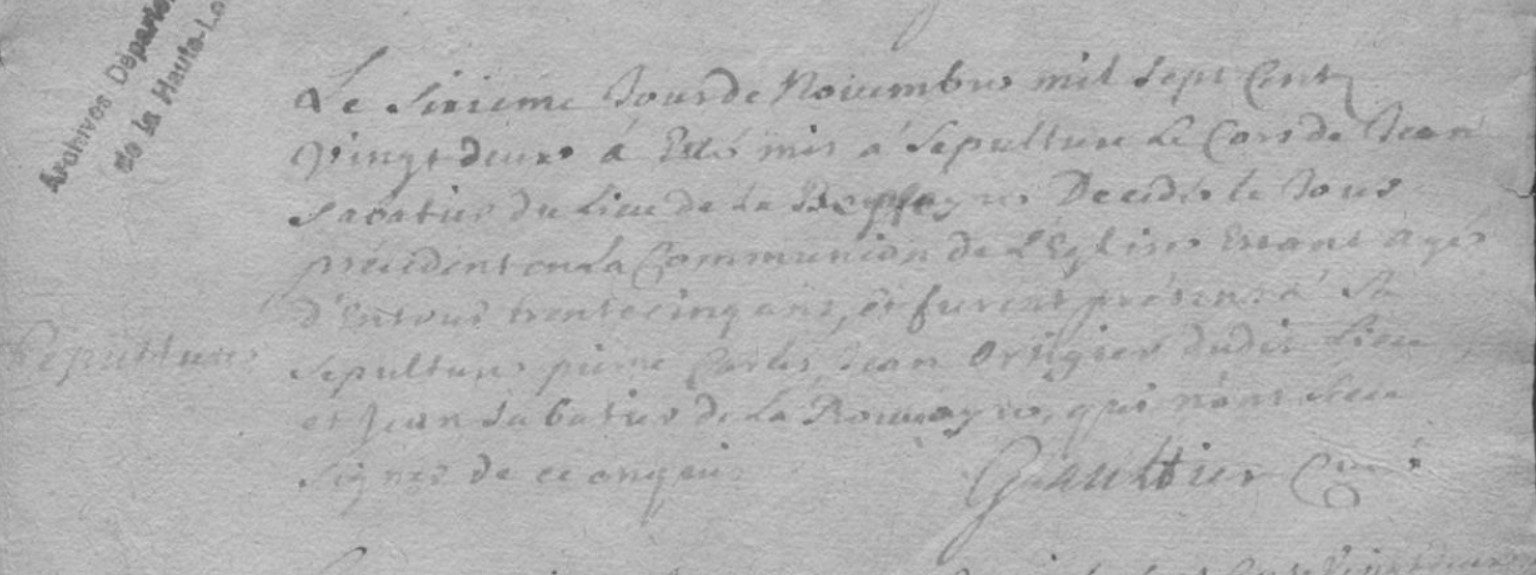 Archives Départe
de la Haute-Lo
Le Sixieme Jour de Novembre mil Sept Cent
Vingt deux à Esté mis a Sepulture Le Cors de Jean
Sabatier du Lieu de La Decedé le Jour
précédent en La Communion de L'Eglise Estant agé
d'Entour trente cinq ans, et furent présens a Sa
Sepulture
Sepulture pierre Jean dudit Lieu
et Jean Sabatier de La qui n'ont Sceu
Signer de ce enquis
Gaulttier Curé